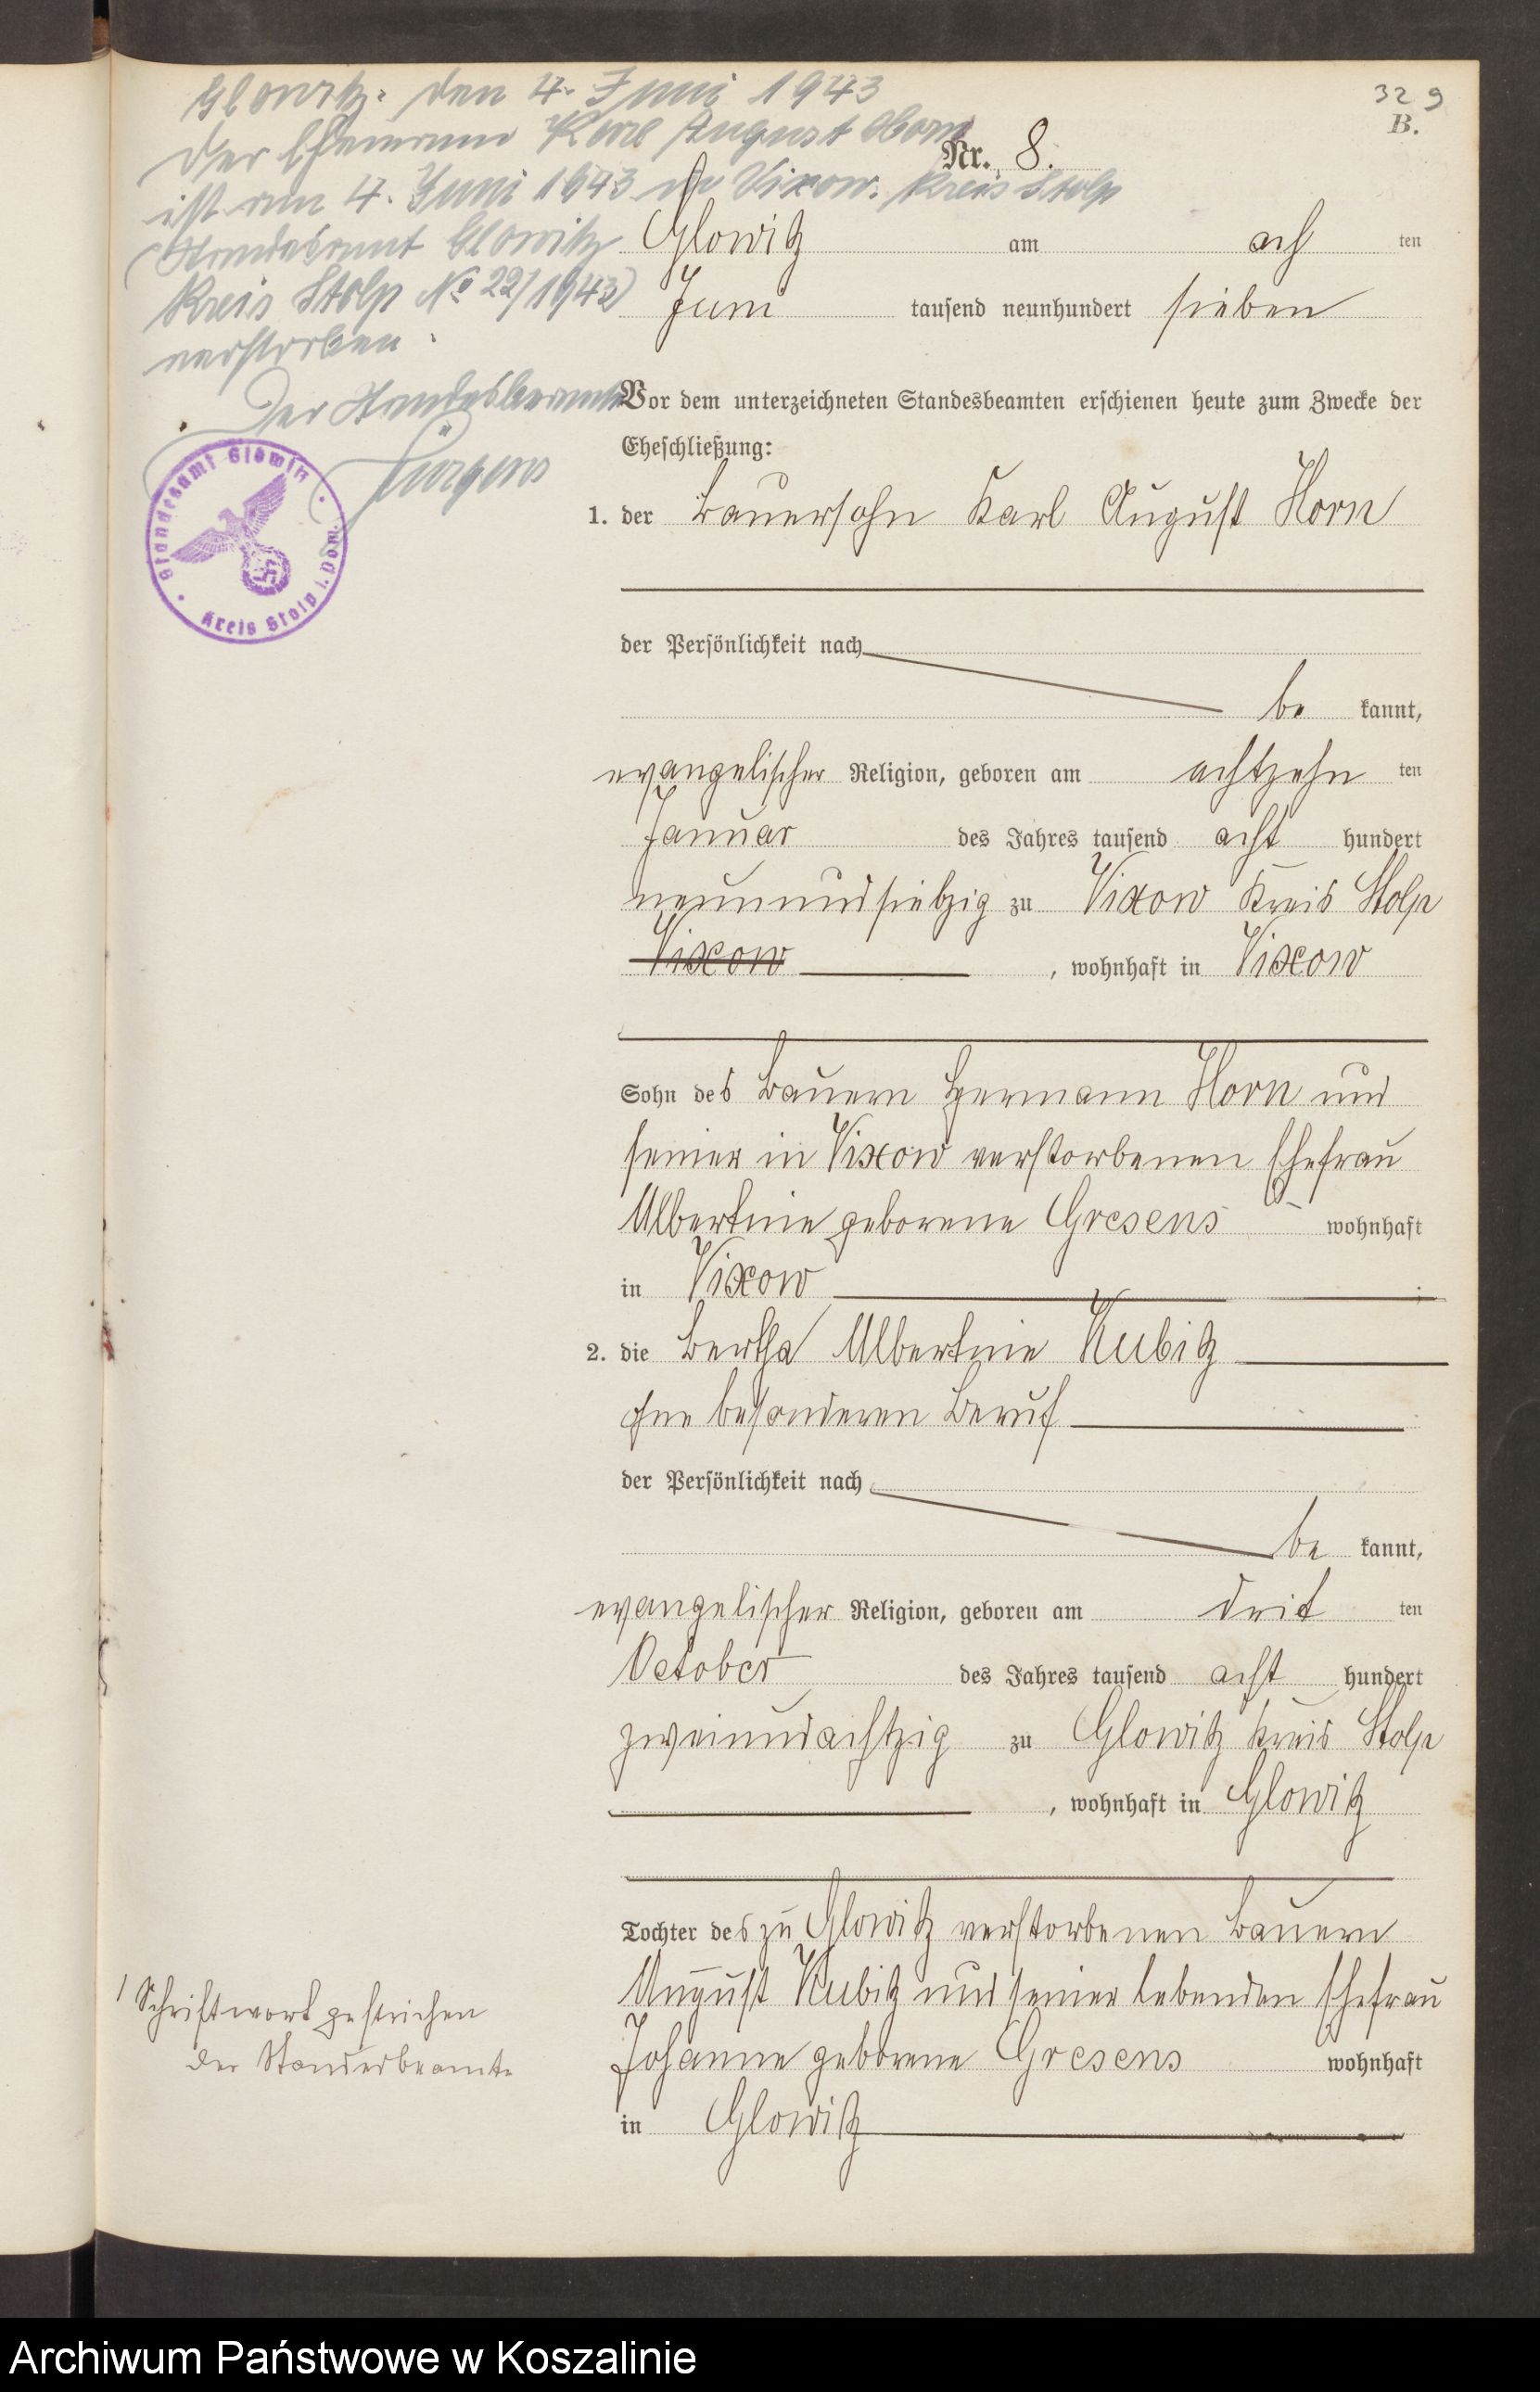 Glowitz. den 4. Juni 1943
Der Ehemann Karl August Horn
ist am 4. Juni 1943 in Vixow. Kreis Stolp
(Standesamt Glowitz
Kreis Stolp No 22/1943)
verstorben.
Der Standesbeamte
Jürgens
Standesamt Glowitz
Kreis Stolp i. Pom.
32 9
B.
Nr. 8.
Glowitz am ach ten
Juni tausend neunhundert sieben
Vor dem unterzeichneten Standesbeamten erschienen heute zum Zwecke der
Eheschließung:
1. der Bauersohn Karl August Horn
der Persönlichkeit nach
be kannt,
evangelischer Religion, geboren am achtzehn ten
Januar des Jahres tausend acht hundert
neunundsiebzig zu Vixow Kreis Stolp
Vixow, wohnhaft in Vixow
Sohn des Bauern Hermann Horn und
seiner in Vixow verstorbenen Ehefrau
Albertine geborene Gresens wohnhaft
in Vixow
2. die Bertha Albertine Kubitz
ohne besonderen Beruf
der Persönlichkeit nach
be kannt,
evangelischer Religion, geboren am drit ten
October des Jahres tausend acht hundert
zweiundachtzig zu Glowitz Kreis Stolp
, wohnhaft in Glowitz
Tochter des zu Glowitz verstorbenen Bauern
August Kubitz und seiner lebenden Ehefrau
Johanne geborene Gresens wohnhaft
in Glowitz
1 Schriftwort gestrichen
Der Standesbeamte
Archiwum Państwowe w Koszalinie